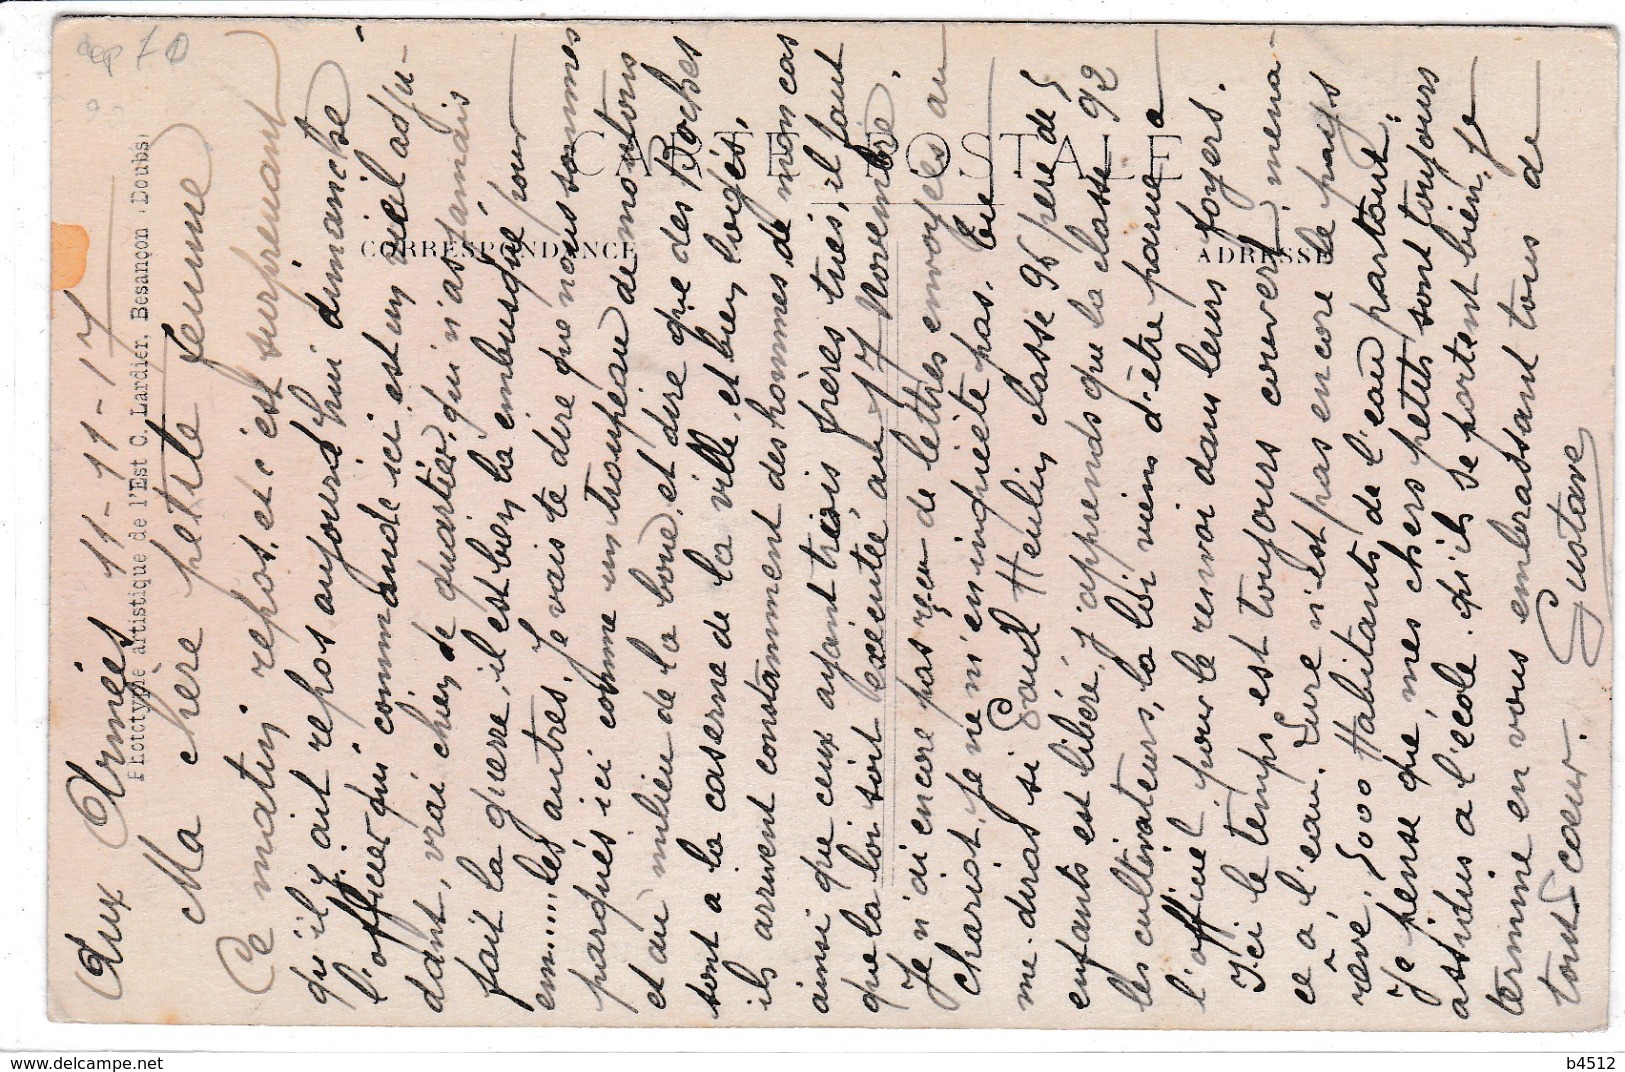 Aux Armées 11-11-17
Ma chère petite femme
Ce matin repos, et c'est surprenant
qu'il y ait repos aujourd'hui dimanche
l'officier qui commande ici est un vieil adju-
dant, vrai chien de quartier, qui n'a jamais
fait la guerre, il est bien là embusqué pour
em......les autres. Je vais te dire que nous sommes
parqués ici comme un troupeau de moutons
et au milieu de la boue, et dire que des Boches
sont à la caserne de la ville, et bien logés,
ils arrivent constamment des hommes de mon cas
ainsi que ceux ayant trois frères tués, il faut
que la loi soit exécutée au 17 Novembre.
Je n'ai encore pas reçu de lettres envoyées au
Chariot, je ne m'en inquiète pas. Tu
me diras si Paul Heulin classe 96 père de 5
enfants est libéré, j'apprends que la classe 92
les cultivateurs, la loi vien d'être parue a
l'officiel pour le renvoi dans leurs foyers.
Ici le temps est toujours couvert, mena-
ce à l'eau. Lure n'est pas encore le pays
rêvé, 5000 Habitants de l'eau partout,
Je pense que mes chers petits sont toujours
assidus a l'école, qu'ils se portent bien, je
termine en vous embrassant tous de
tout cœur. Gustave
CARTE POSTALE
CORRESPONDANCE
ADRESSE
Phototypie artistique de l'Est C. Lardier, Besançon (Doubs)
70
b4512